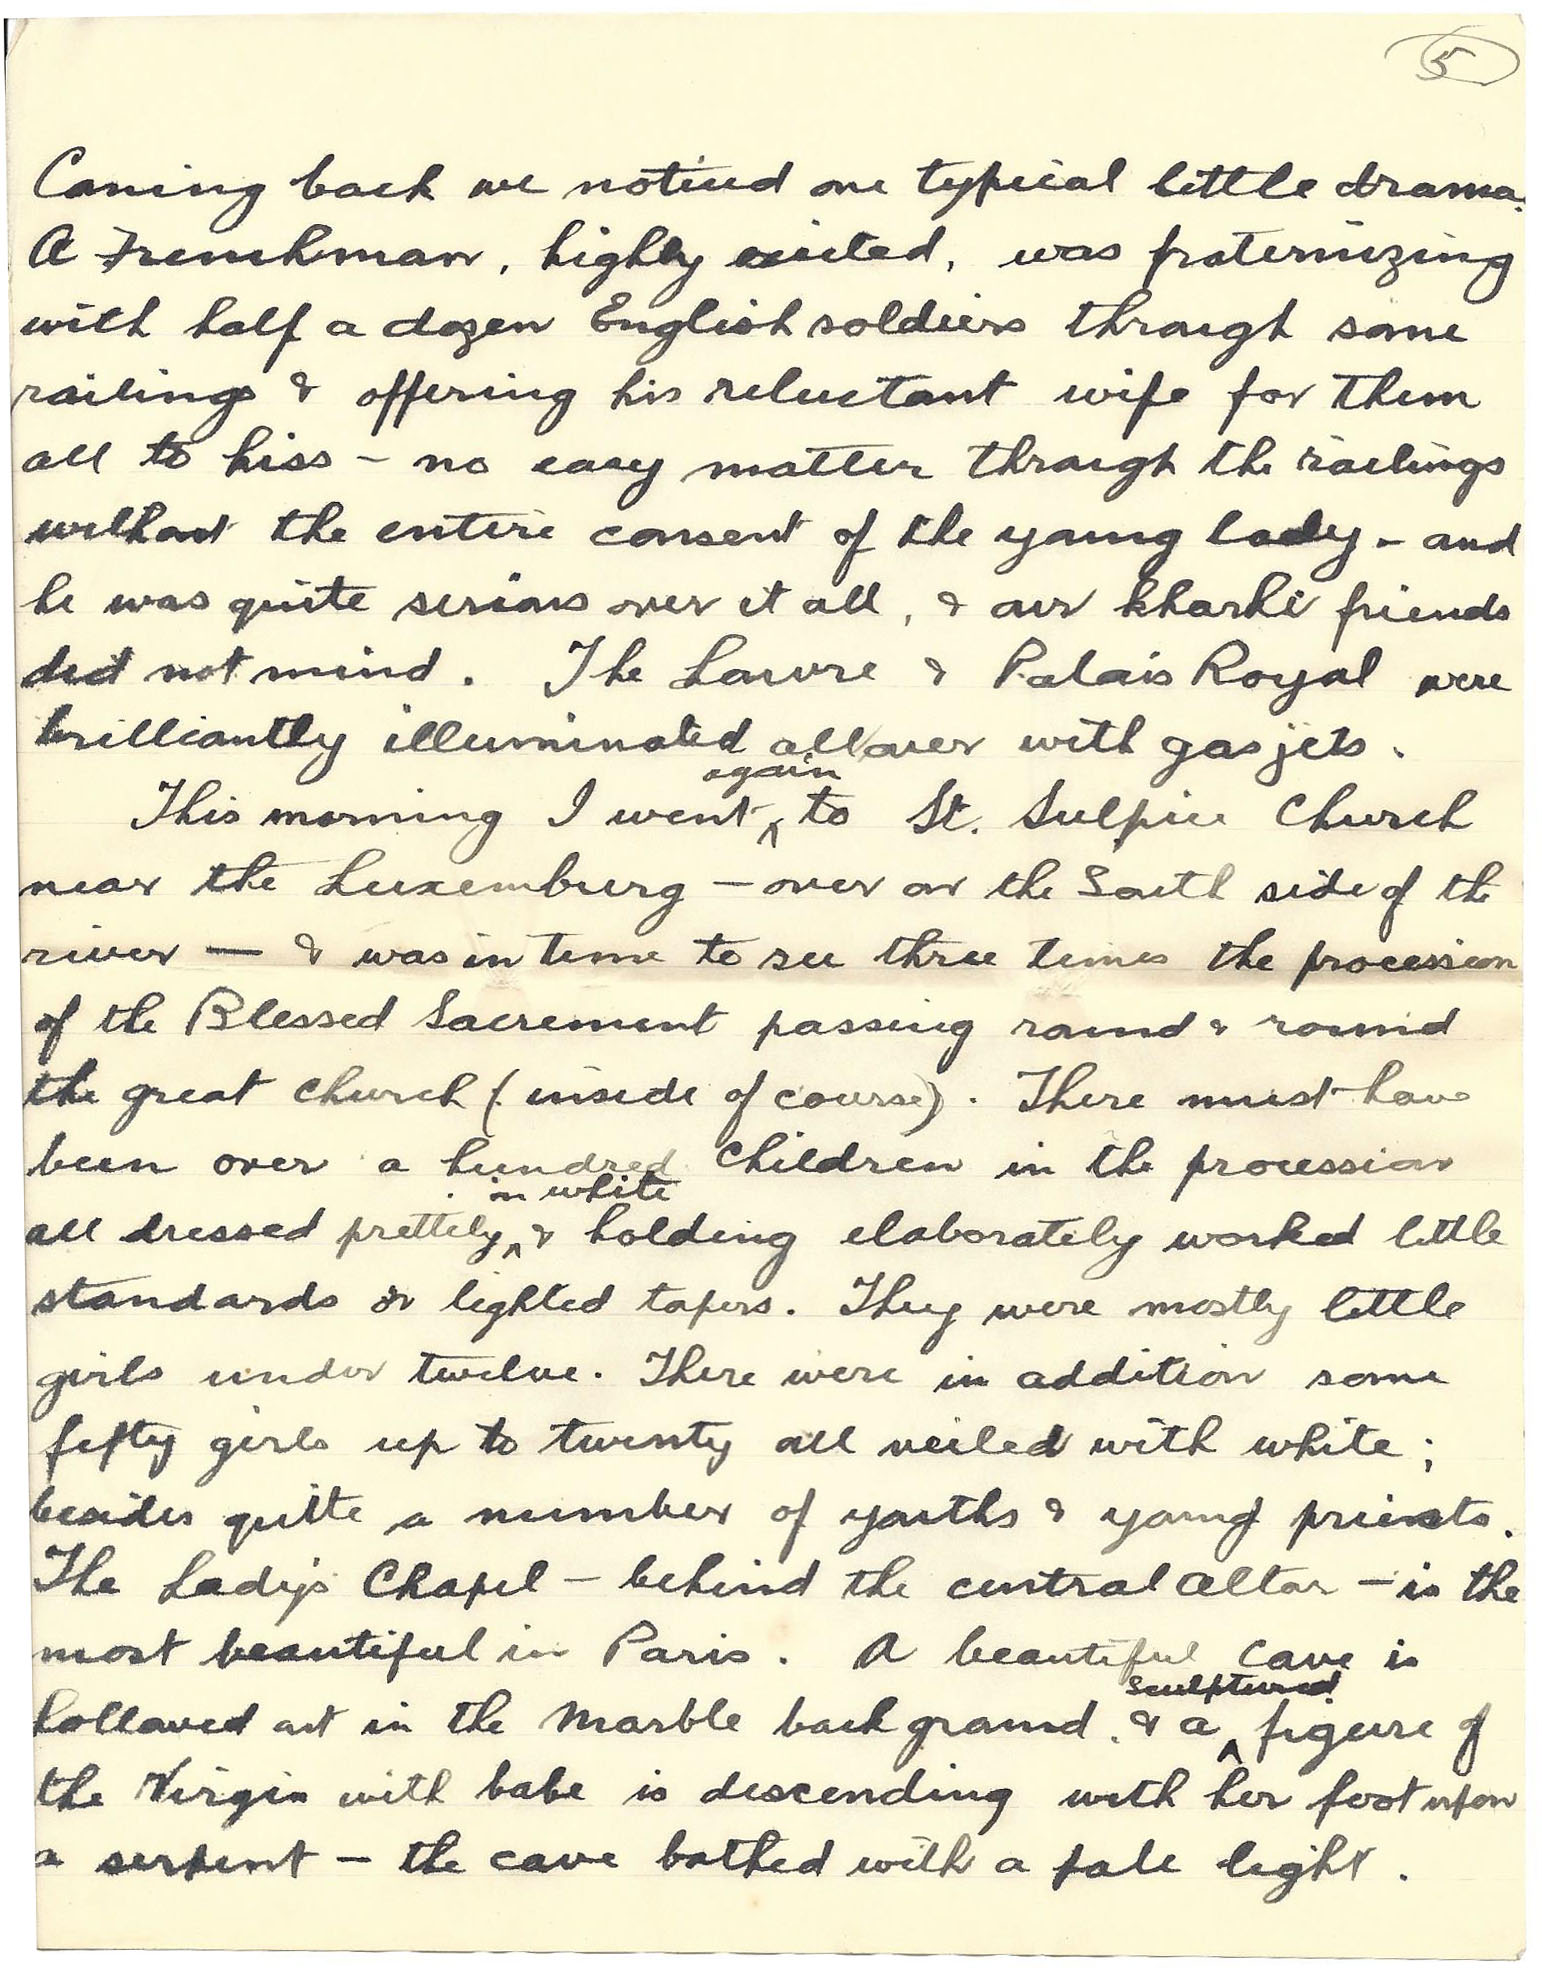 5
Coming back we noticed one typical little drama.
A Frenchman, highly excited, was fraternizing
with half a dozen English soldiers through some
railings & offering his reluctant wife for them
all to kiss – no easy matter through the railings
without the entire consent of the young lady – and
he was quite serious over it all, & our kharki friends
did not mind. The Louvre & Palais Royal were
brilliantly illuminated all over with gas jets.
This morning I went again to St. Sulpice Church
near the Luxemburg – over on the South side of the
river – & was in time to see three times the procession
of the Blessed Sacrement passing round & round
the great church (inside of course). There must have
been over a hundred children in the procession
all dressed prettily in white & holding elaborately worked little
standards or lighted tapers. They were mostly little
girls under twelve. There were in addition some
fifty girls up to twenty all veiled with white;
besides quite a number of youths & young priests.
The Lady's Chapel – behind the central altar – is the
most beautiful in Paris. A beautiful cave is
hollowed out in the marble back ground, & a sculptured figure of
the Virgin with babe is descending with her foot upon
a serpent – the cave bathed with a pale light.